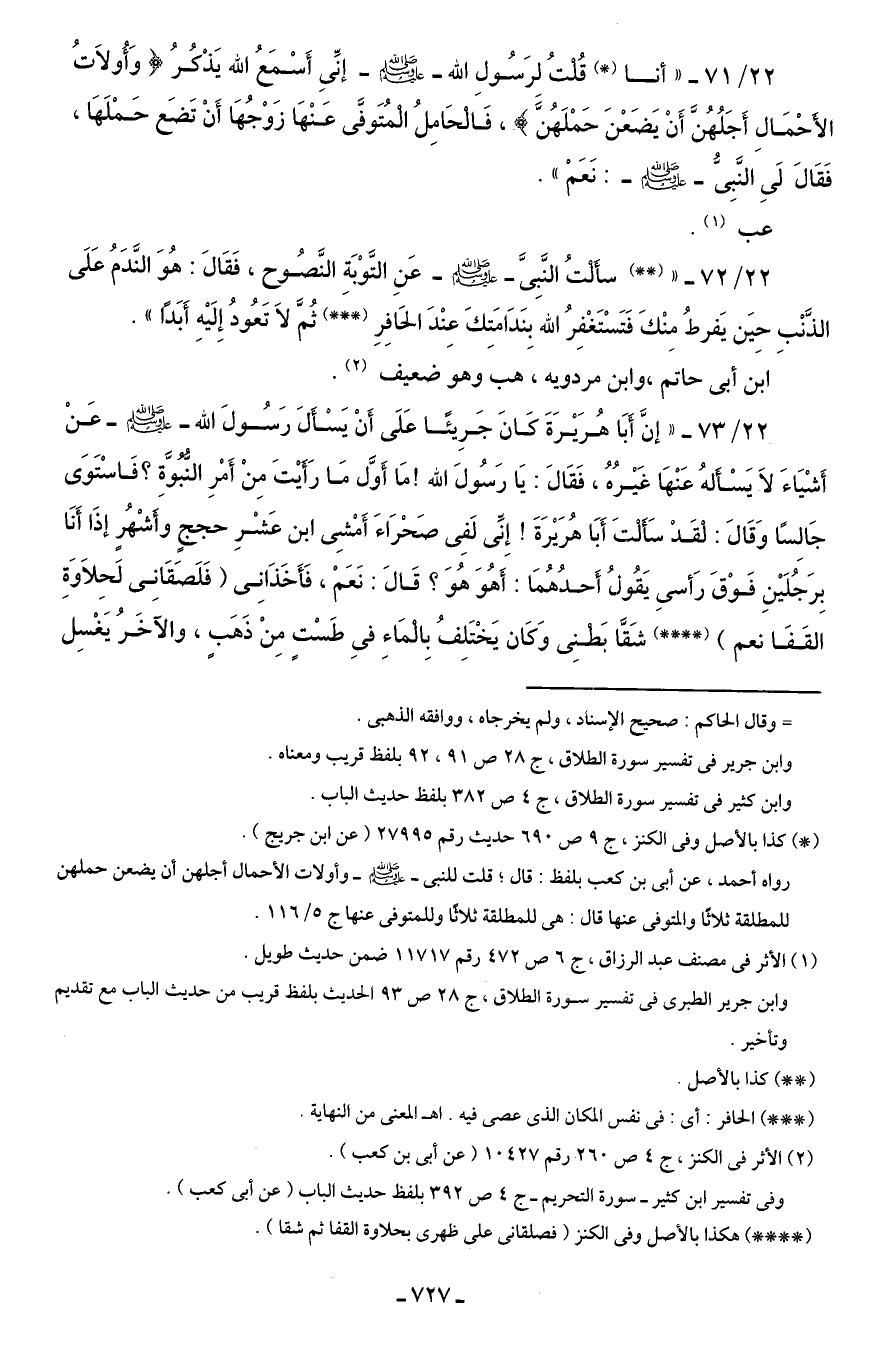 ٢٢/ ٧١ ـ « أنـــا (*) قُلْتُ لِرَسُولِ الله ـ ﷺ ـ إِنِّى أَسْـمَعُ الله يَذْكُـرُ ﴿ وَأُولاَتُ
الأَحْمَـالِ أَجَلُهُنَّ أَنْ يَضَعْنَ حَمْلَهُنَّ ﴾ ، فَـالْحَامِلُ الْمُتَوفَّى عَـنْهَا زَوْجُهَا أَنْ تَضَعَ حَـمْلَهَا ،
فَقَالَ لَىِ النَّبِىُّ ـ ﷺ ـ : نَعَمْ » .
عب (١) .
٢٢/ ٧٢ ـ « (**) سألْتُ النَّبِىَّ ـ ﷺ ـ عَنِ التَّوْبَةِ النَّصُوحِ ، فَقَالَ : هُوَ النَّدَمُ عَلَى
الذَّنْبِ حِيَن يَفرطُ مِنْكَ فَتَسْتَغْفِرُ الله بِنَدَامَتِكَ عِنْدَ الحَافِرِ (***) ثُمَّ لاَ تَعُودُ إِلَيْهِ أَبَدًا » .
ابن أبى حاتم ،وابن مردويه ، هب وهو ضعيف (٢) .
٢٢/ ٧٣ ـ « إنَّ أَبَا هُـرَيْـرَةَ كَـانَ جَـرِيئًــا عَلَى أَنْ يَسْـأَلَ رَسُــولَ الله ـ ﷺ ـ عَـنْ
أَشْيَاءَ لاَ يَسْـأَلهُ عَنْهَا غَيْـرُهُ ، فَقَالَ : يَا رَسُولَ الله !مَا أَوَّلَ مَـا رَأَيْتَ مِنْ أَمْرِ النُّبُوَّةِ ؟فَـاسْتَوَى
جَالِسًا وَقَالَ : لَقَـدْ سَأَلْتَ أَبَا هُرَيْرَةَ ! إِنِّى لَفِى صَحْرَاءَ أَمْشِى ابن عَشْـرِ حججٍ وأَشْهُرٍ إِذَا أَنَا
بِرَجُلَيْنِ فَـوْقَ رَأسِى يَقُولُ أَحـدُهُمَا : أَهُوَ هُوَ ؟ قَـالَ : نَعَمْ ، فَأَخَذَانِـى ( فَلَصَقَانِـى لَحِلاَوَةِ
القَـفَـا نعم ) (****) شَقَّا بَطْـنِى وَكَان يَخْتَلِفُ بِالْمَاءِ فِى طَسْتٍ مِنْ ذَهَبٍ ، والآخَـرُ يَغْسِل
= وقال الحاكم : صحيح الإسناد ، ولم يخرجاه ، ووافقه الذهبى .
وابن جرير فى تفسير سورة الطلاق ، ج ٢٨ ص ٩١ ، ٩٢ بلفظ قريب ومعناه .
وابن كثير فى تفسير سورة الطلاق ، ج ٤ ص ٣٨٢ بلفظ حديث الباب .
(*) كذا بالأصل وفى الكنز ، ج ٩ ص ٦٩٠ حديث رقم ٢٧٩٩٥ ( عن ابن جريج ) .
رواه أحمد ، عن أبى بن كعب بلفظ : قال ؛ قلت للنبى ـ ﷺ ـ وأولات الأحمال أجلهن أن يضعن حملهن
للمطلقة ثلاثًا والمتوفى عنها قال : هى للمطلقة ثلاثًا وللمتوفى عنها ج ٥/ ١١٦ .
(١) الأثر فى مصنف عبد الرزاق ، ج ٦ ص ٤٧٢ رقم ١١٧١٧ ضمن حديث طويل .
وابن جرير الطبرى فى تفسير سـورة الطلاق ، ج ٢٨ ص ٩٣ الحديث بلفظ قريب من حديث الباب مع تقديم
وتأخير .
(**) كذا بالأصل .
(***) الحافر : أى : فى نفس المكان الذى عصى فيه . اهـ المعنى من النهاية .
(٢) الأثر فى الكنز ، ج ٤ ص ٢٦٠ رقم ١٠٤٢٧ ( عن أبى بن كعب ) .
وفى تفسير ابن كثير ـ سورة التحريم ـ ج ٤ ص ٣٩٢ بلفظ حديث الباب ( عن أبى كعب ) .
(****) هكذا بالأصل وفى الكنز ( فصلقانى على ظهرى بحلاوة القفا ثم شقا ) .
ـ ٧٢٧ ـ